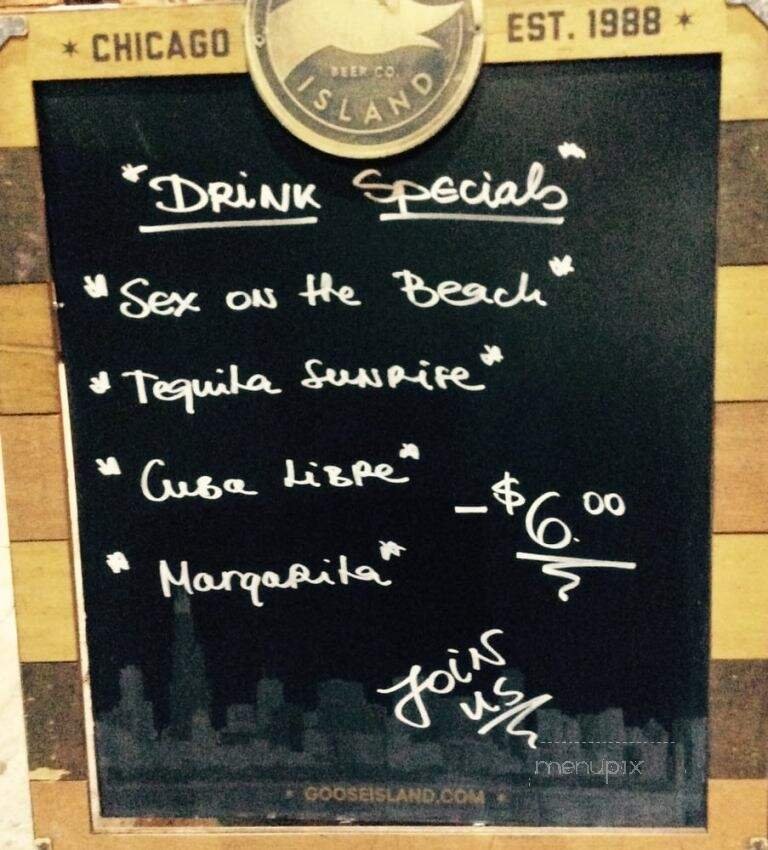 * CHICAGO
EST. 1988 *
BEER CO.
ISLAND
"DRINK Specials"
* Sex on the Beach *
* Tequila Sunrise *
* Cuba Libre *
- $6.00
* Margarita *
Join
us
menupix
* GOOSEISLAND.COM *